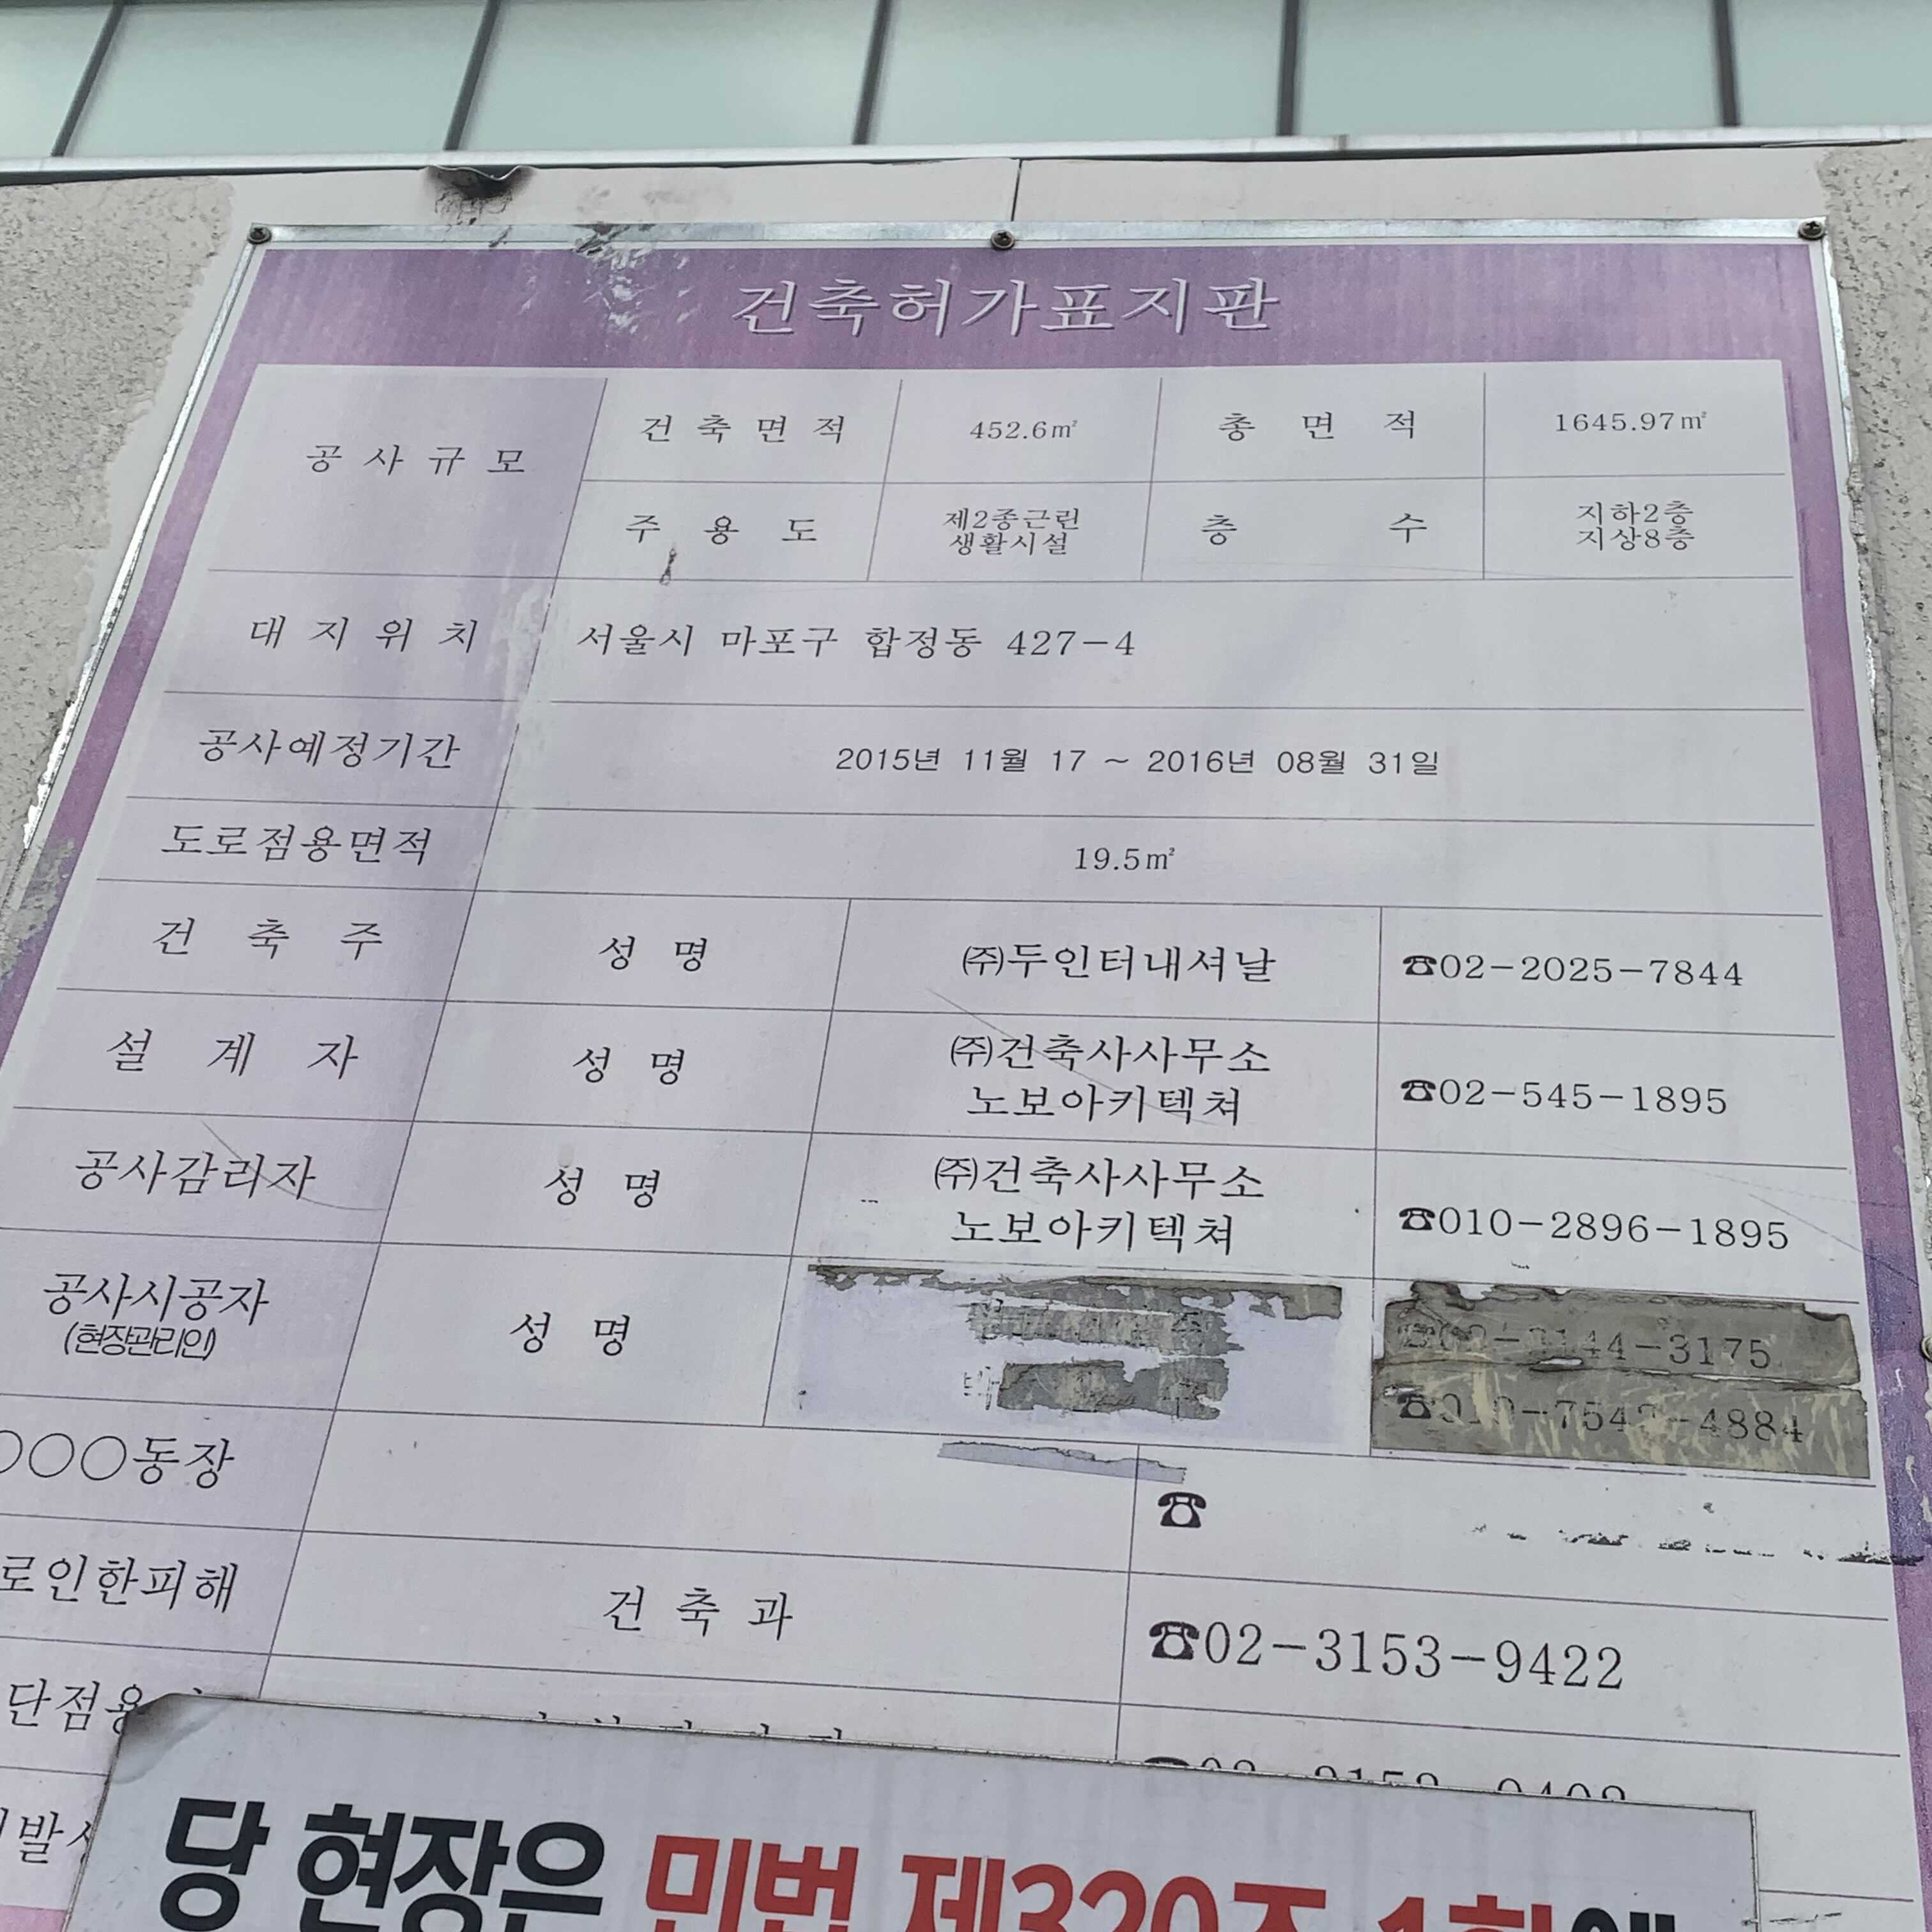 건축허가표지판
공사규모 건축면적 452.6㎡ 총면적 1645.97㎡
주용도 제2종근린 생활시설 층수 지하2층 지상8층
대지위치 서울시 마포구 합정동 427-4
공사예정기간 2015년 11월 17 ~ 2016년 08월 31일
도로점용면적 19.5㎡
건축주 성명 ㈜두인터내셔날 ☎02-2025-7844
설계자 성명 ㈜건축사사무소 노보아키텍쳐 ☎02-545-1895
공사감리자 성명 ㈜건축사사무소 노보아키텍쳐 ☎010-2896-1895
공사시공자 (현장관리인) 성명
○○○동장 ☎
로인한피해 건축과 ☎02-3153-9422
단점용
당 현장은 민법 제320조 1항에